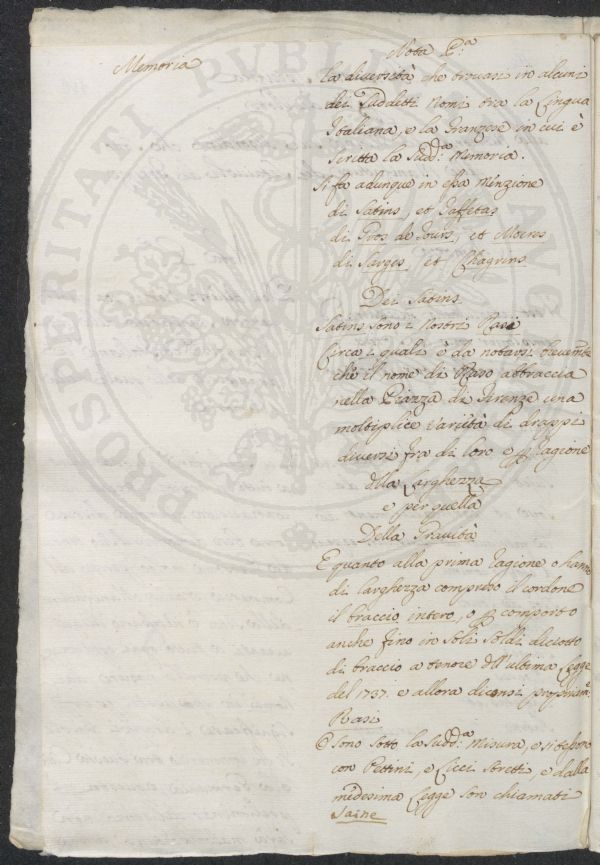 Memoria
Nota P.ª
La diversità, che trovasi in alcuni
dei Suddetti Nomi tra la Lingua
Italiana, e la Franzese in cui è
scritta la Sudd.ª Memoria.
Si fa adunque in essa Menzione
di Satins, et Taffetas
di Gros de Tours, et Moeres
di Serges, et Chagrins
Dei Satins
Satins sono i Nostri Rasi
Circa i quali è da notarsi brevem.te
che il nome di Raso abbraccia
nella Piazza di Firenze una
moltiplice varietà di drappi
diversi fra di loro e p ragione
della Larghezza
e per quella
Della Gravità
E quanto alla prima ragione o hanno
di larghezza compreso il cordone
il braccio intero, o p comporto
anche fino in soli Soldi diciotto
di braccio a tenore dell'ultima Legge
del 1737. e allora diconsi propriam.e
Rasi
O sono sotto la Sudd.ª Misura, e si tessono
con Pettini, e Licci stretti, e dalla
medesima Legge son chiamati
Saine
PROSPERITATI PUBLICAE AUG